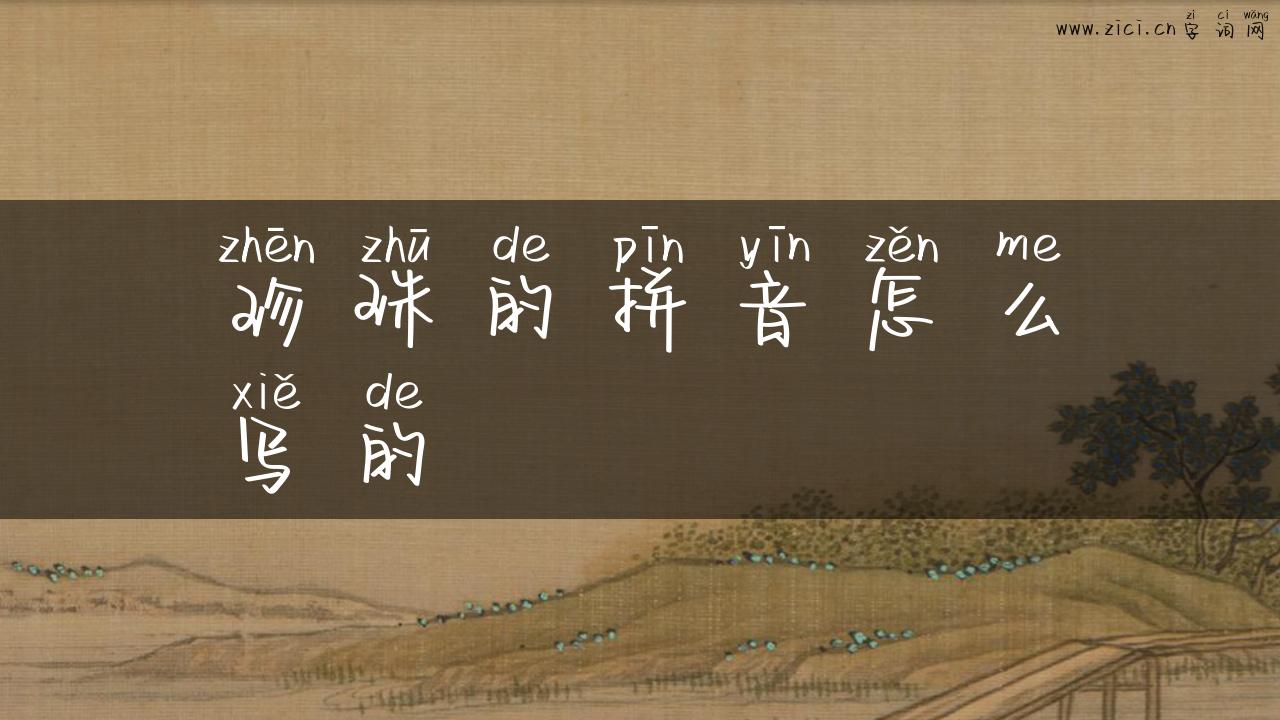 zì cí wǎng
www.zici.cn 字 词 网
zhēn zhū de pīn yīn zěn me
珍 珠 的 拼 音 怎 么
xiě de
写 的